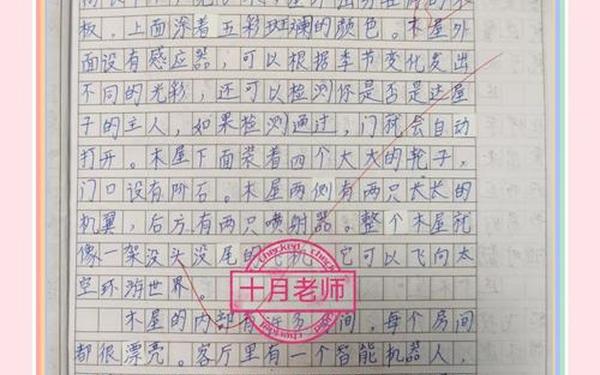 板，上面涂着五彩斑斓的颜色。木屋外
面设有感应器，可以根据季节变化发出
不同的光彩，还可以检测你是否是这屋
子的主人，如果检测通过，门就会自动
打开。木屋下面装着四个大大的轮子，
门口设有阶石。木屋两侧有两只长长的
机翼，后方有两只喷射器。整个木屋就
像一架没头没尾的飞机，它可以飞向太
空环游世界。
checked
十月老师
checked
木屋的内部有许多房间，每个房间
都很漂亮。客厅里有一个智能机器人，